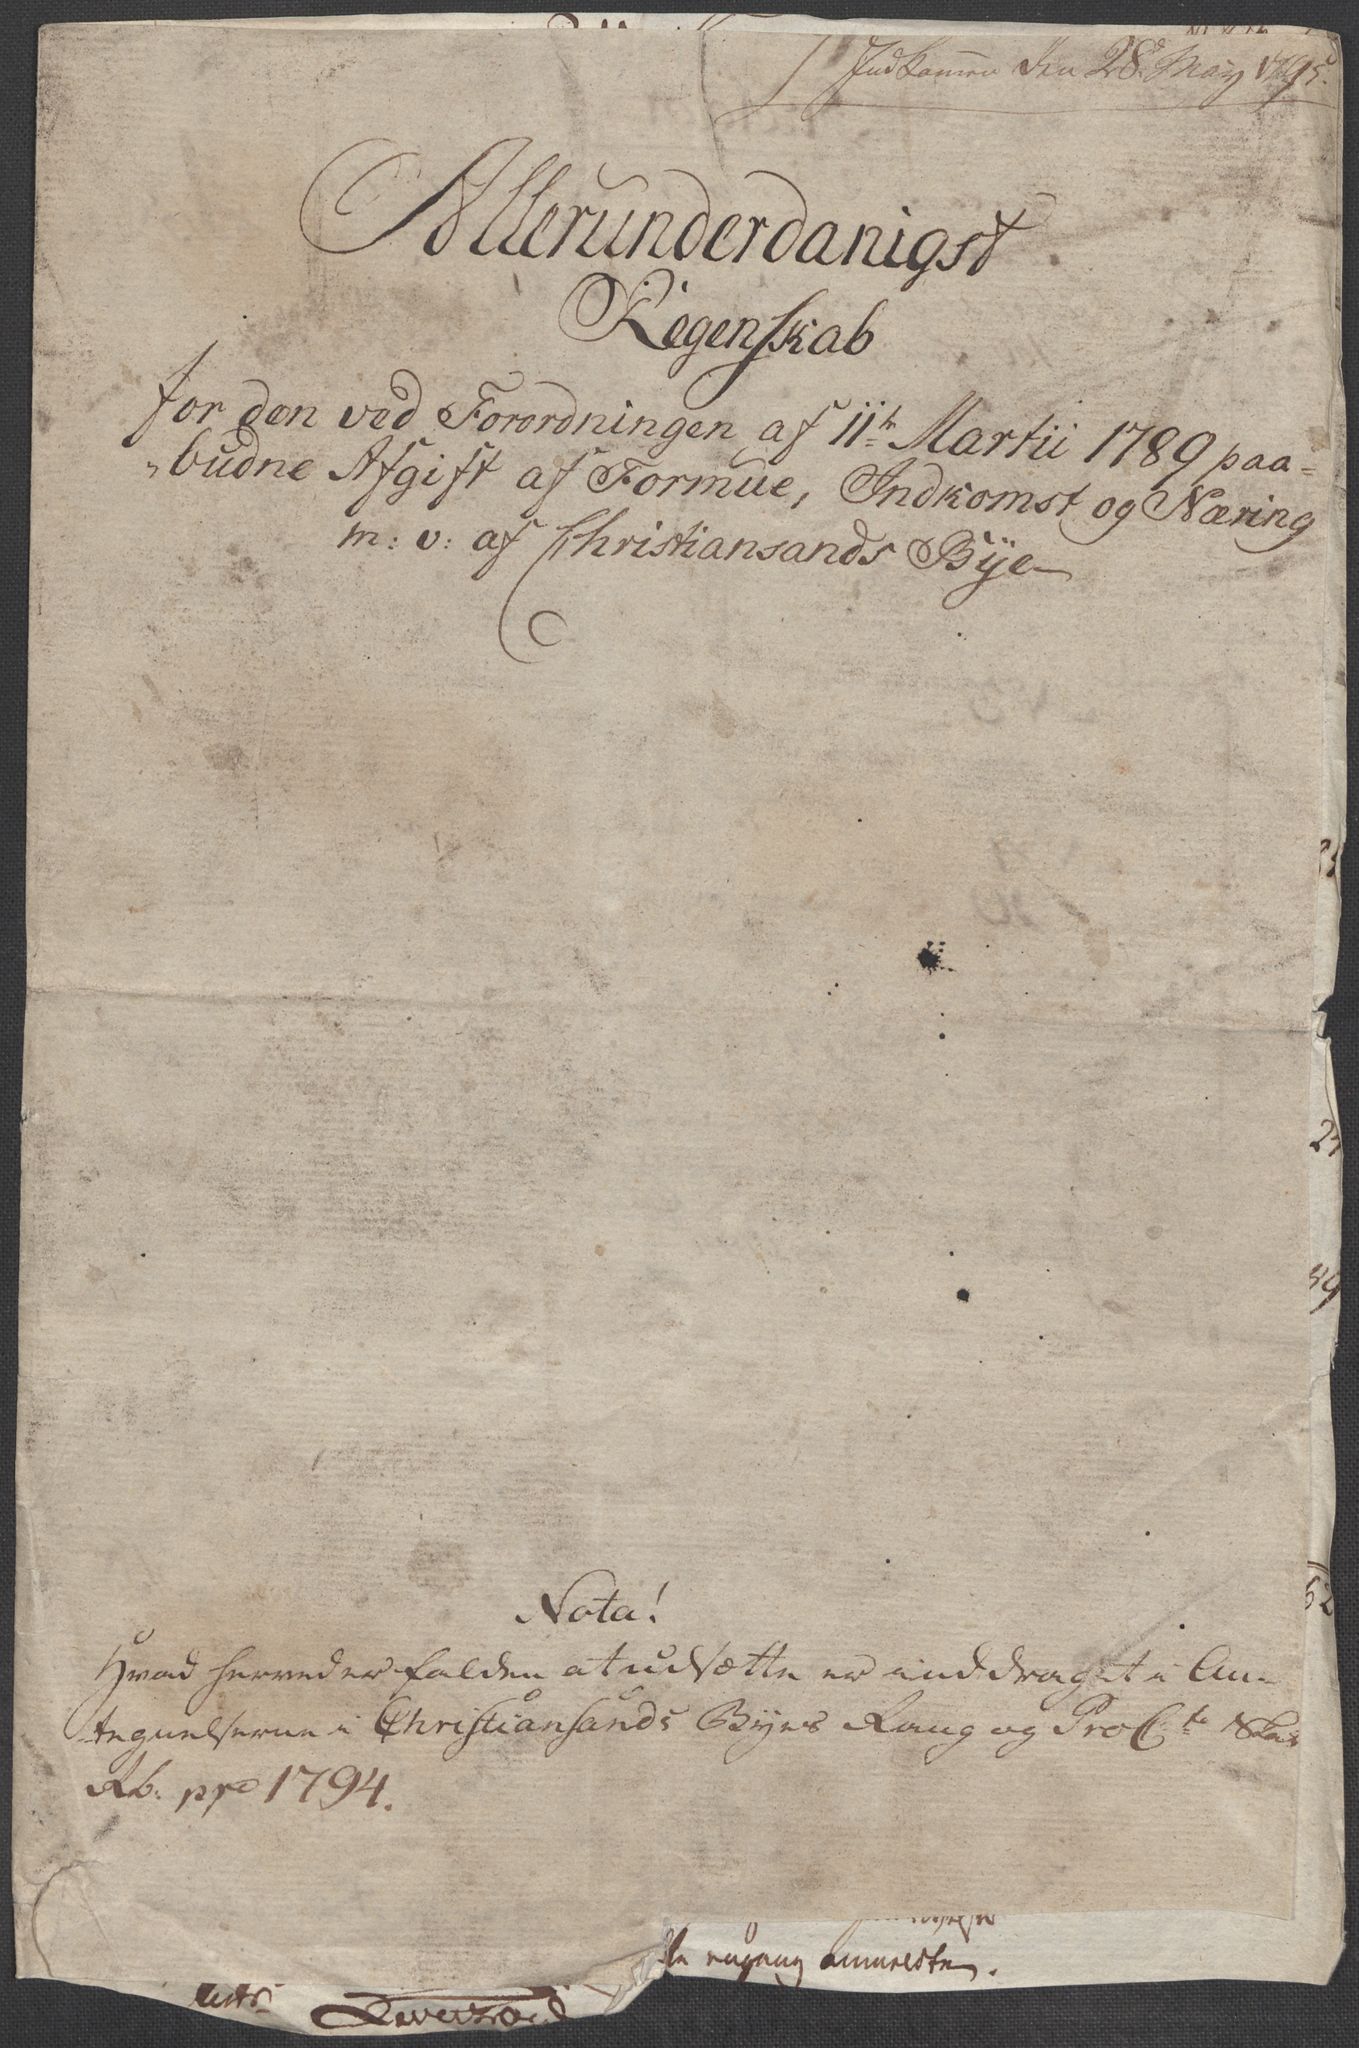 Indkommen den 28d May 1795.
Allerunderdanigst
Regenskab
for den ved Forordningen af 11te Martii 1789 paa=
„budne Afgift af Formue, Indkomst og Næring
m: v: af Christiansands Bÿe
Nota!
Hvad herved er falden at udsætte er inddraget i An-
tegnelserne i Christiansands Byes Rang og ProCto Skat
Rb: pro 1794.